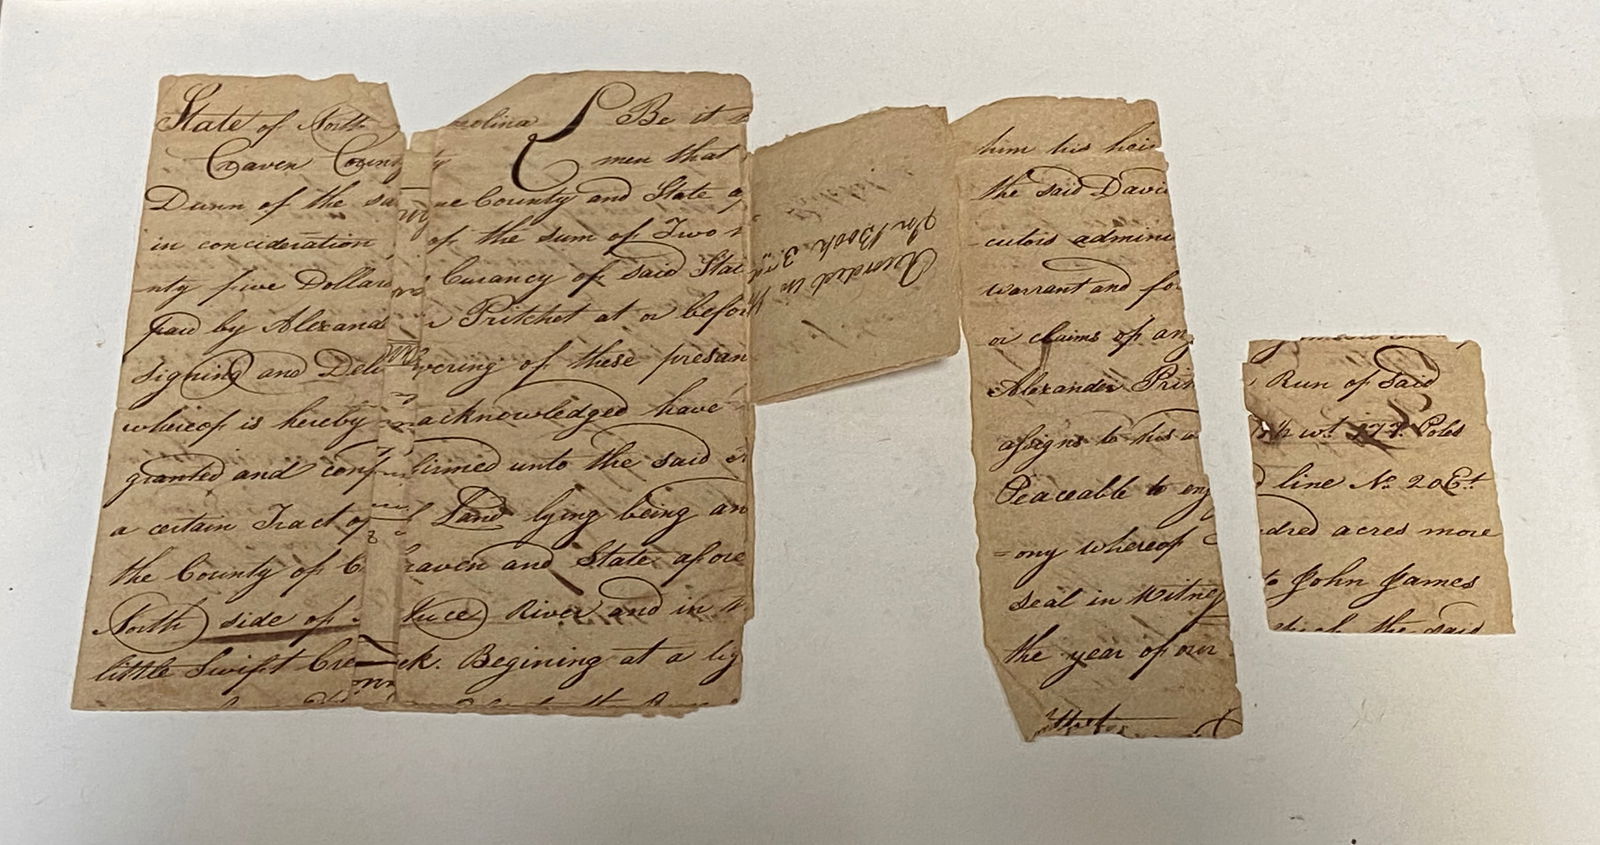 State of North Carolina Be it
Craven County men that
Dunn of the same County and State of
in concideration of the sum of Two
nty five Dollars Curancy of said Stat
paid by Alexander Pritchet at or befor
signing and Delivering of these presan
whereof is hereby acknowledged have
granted and confirmed unto the said
a certain Tract of Land lying being an
the County of Craven and State afore
North side of Nuce River and in
little Swift Creek. Begining at a
Recorded in
Book 3
him his heir
the said Davi
cutors admini
warrant and for
or claims of any
Alexander Prit
assigns to his
Peaceable to enj
=ony whereof
seal in Witne
the year of our
Run of Said
wt. 177. Poles
line No. 20 Et
dred acres more
to John James
the said